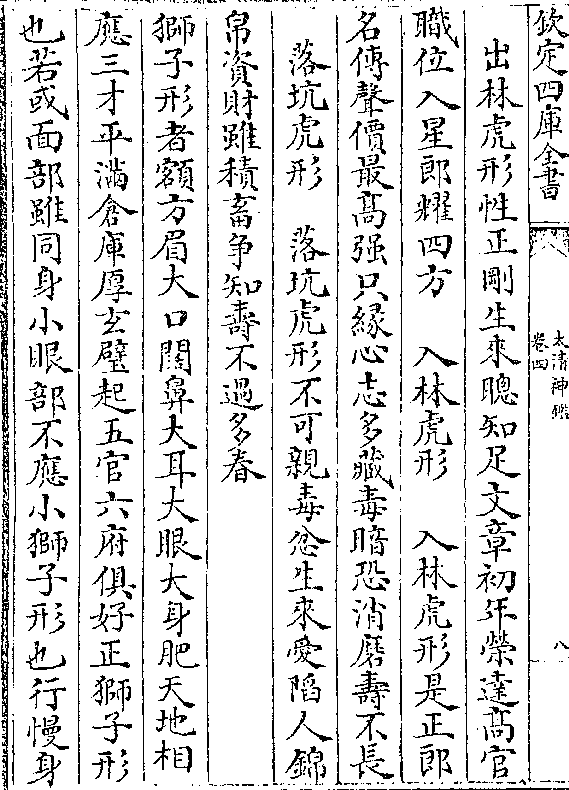 欽定四庫全書
太清神鑑
卷四
八
出林虎形性正剛生來聰知足文章初年榮達髙官
職位入星郎耀四方　入林虎形　入林虎形是正郎
名傳聲價最髙强只緣心志多藏毒暗恐消磨壽不長
落坑虎形　落坑虎形不可親毒忿生來愛陷人錦
帛資財雖積畜争知壽不過多春
獅子形者額方眉大口闊鼻大耳大眼大身肥天地相
應三才平滿倉庫厚玄璧起五官六府俱好正獅子形
也若或面部雖同身小眼部不應小獅子形也行慢身